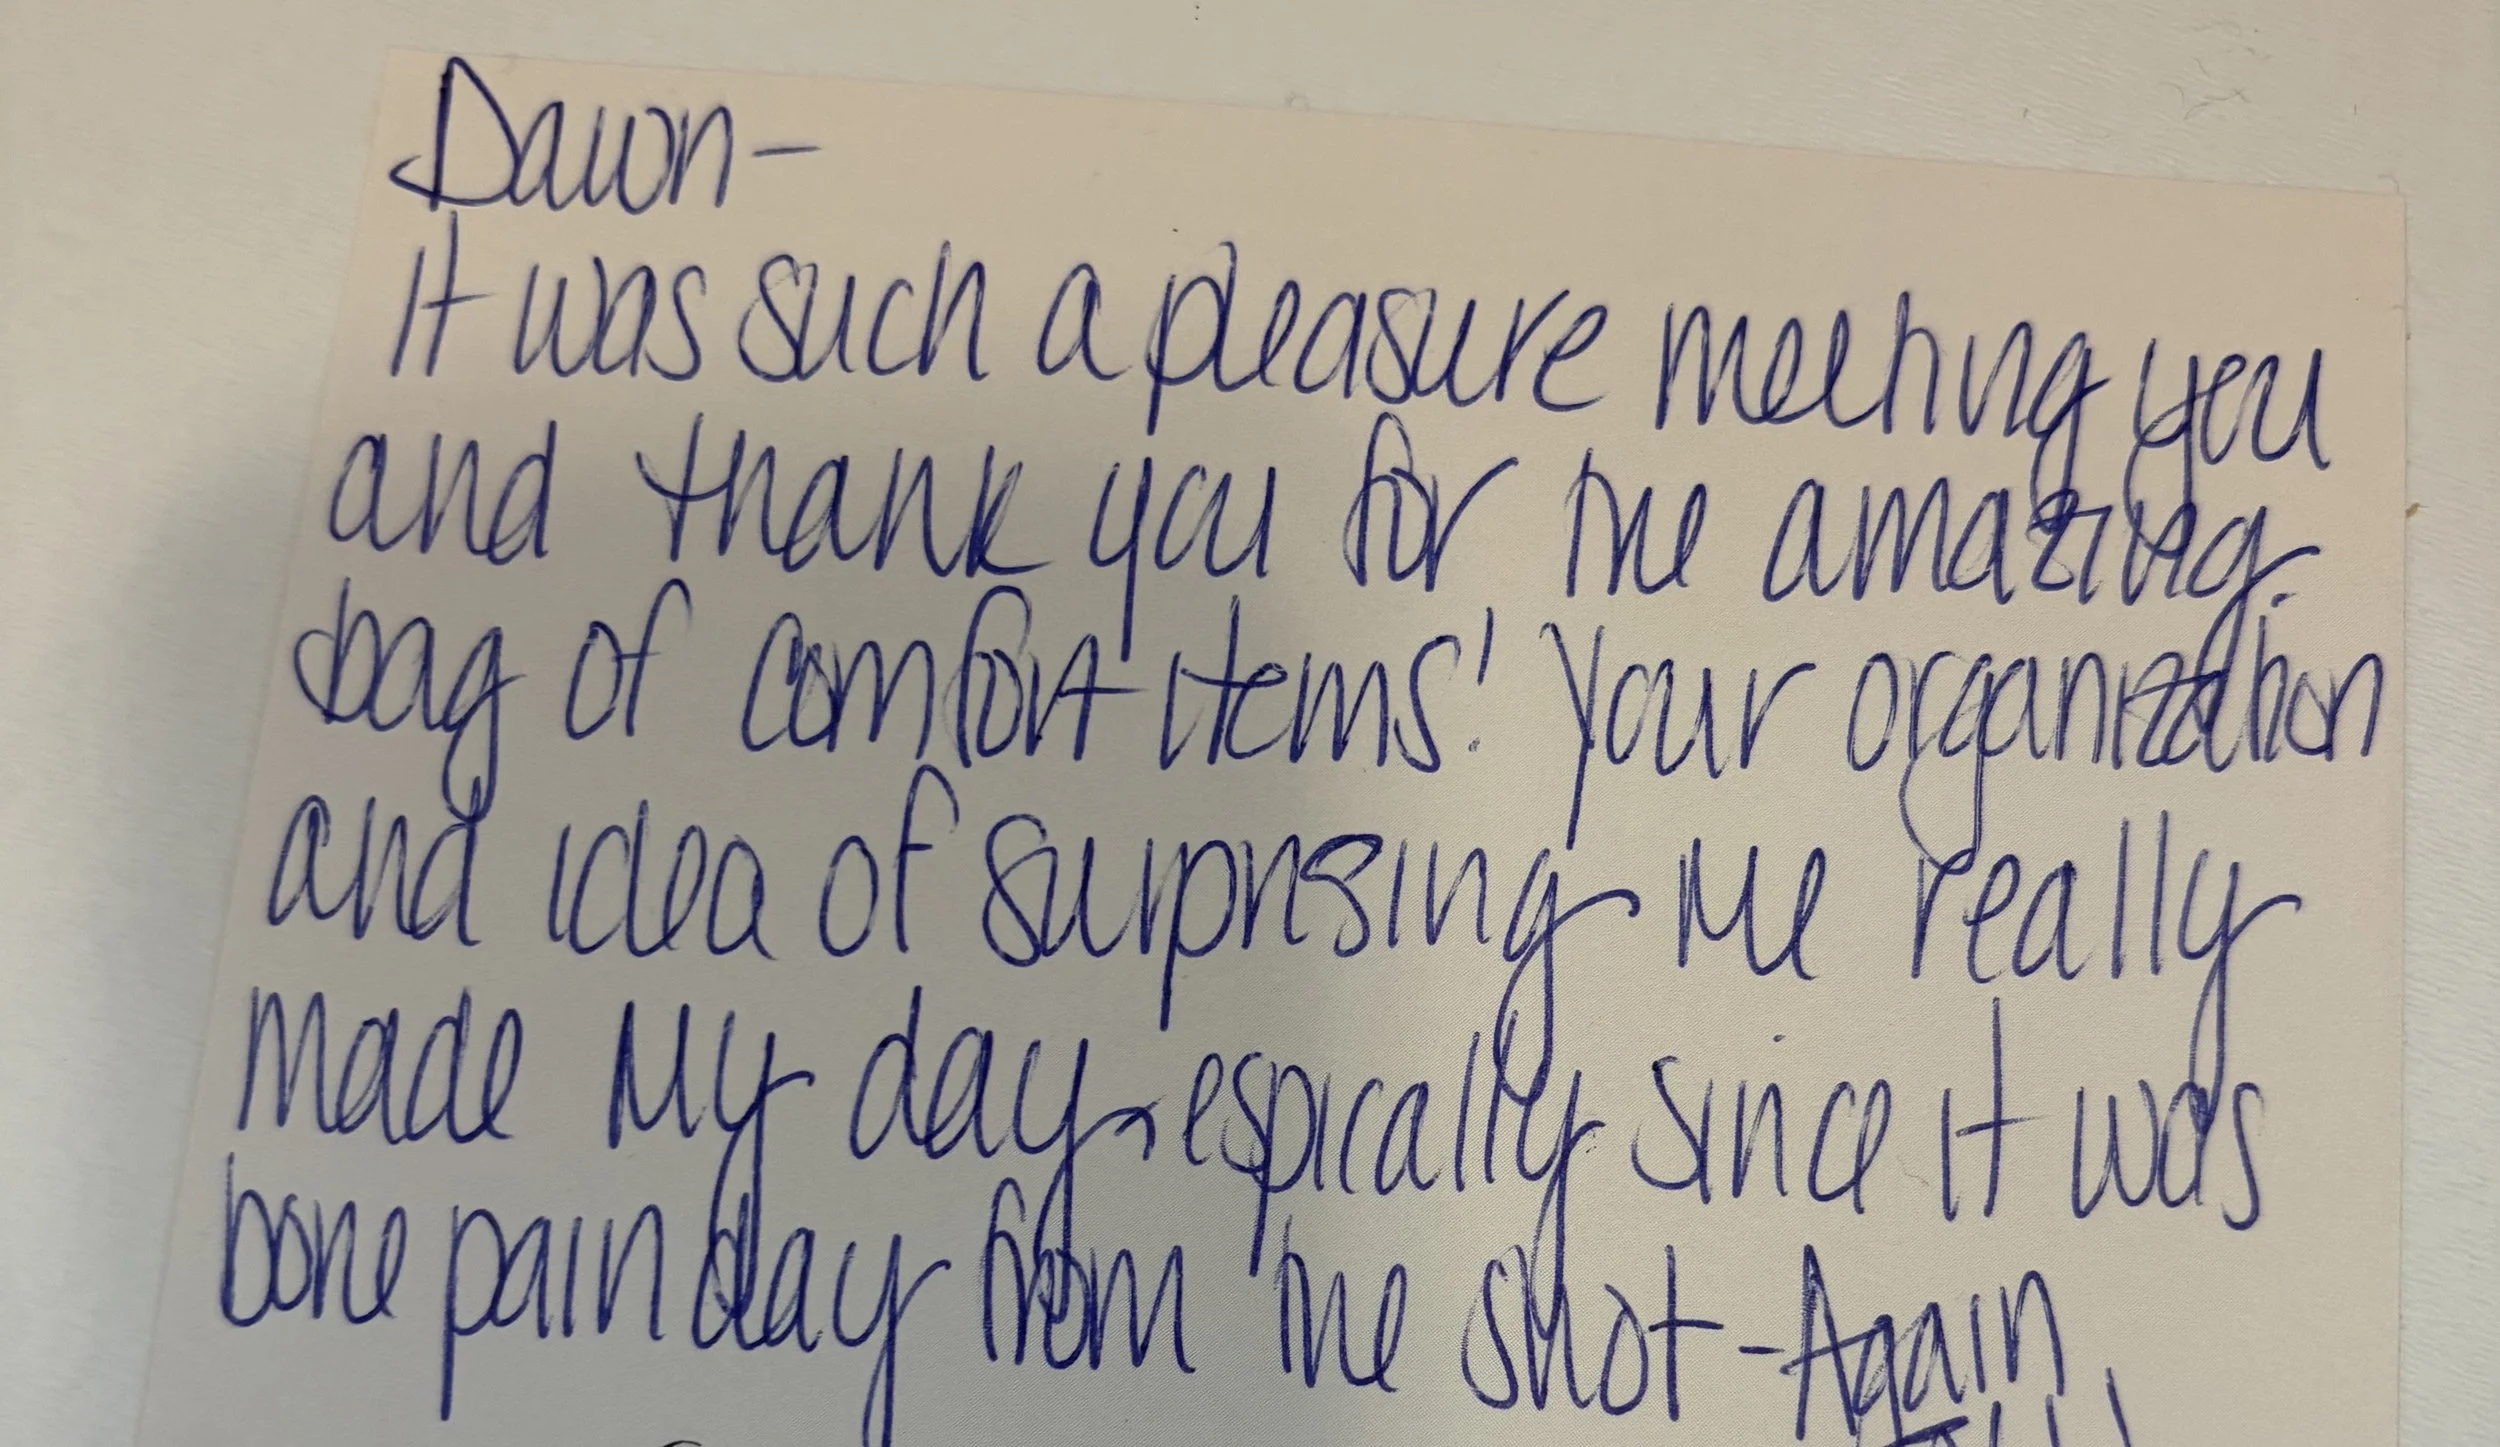 Dawn-
It was such a pleasure meeting you
and thank you for the amazing
bag of comfort items! Your organization
and idea of surprising me really
made my day, espically since it was
bone pain day from the shot - Again,